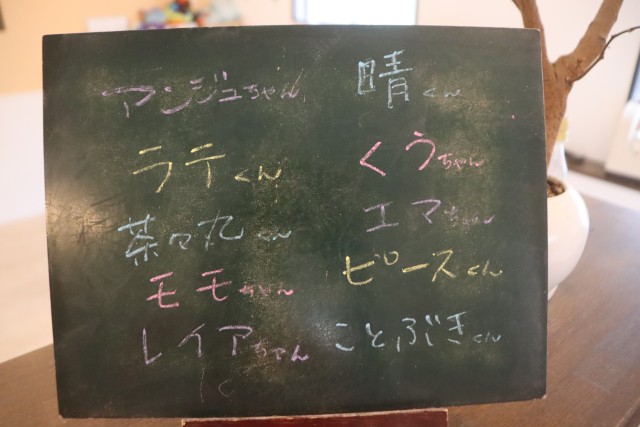 アンジュちゃん
ラテくん
茶々丸くん
モモちゃん
レイアちゃん
晴くん
くうちゃん
エマちゃん
ピースくん
ことぶきくん